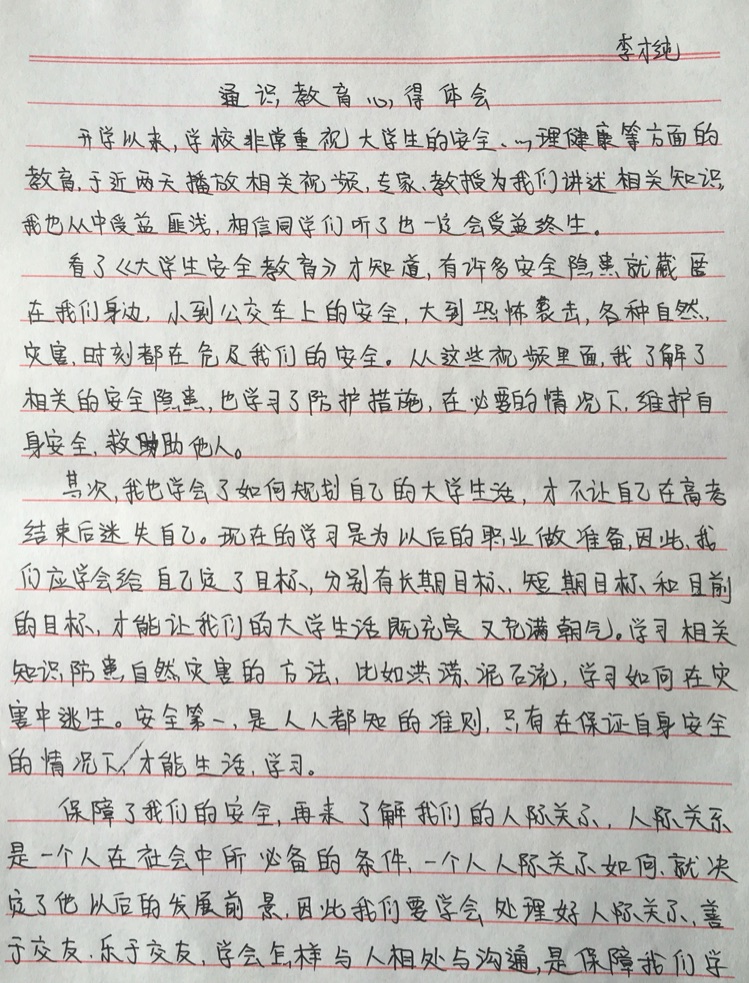 李才纯
通识教育心得体会
开学以来,学校非常重视大学生的安全、心理健康等方面的
教育,于近两天播放相关视频,专家、教授为我们讲述相关知识,
我也从中受益匪浅,相信同学们听了也一定会受益终生。
看了《大学生安全教育》才知道,有许多安全隐患就藏匿
在我们身边,小到公交车上的安全,大到恐怖袭击,各种自然
灾害,时刻都在危及我们的安全。从这些视频里面,我了解了
相关的安全隐患,也学习了防护措施,在必要的情况下,维护自
身安全,救助他人。
其次,我也学会了如何规划自己的大学生活,才不让自己在高考
结束后迷失自己。现在的学习是为以后的职业做准备,因此,我
们应学会给自己定了目标,分别有长期目标、短期目标和目前
的目标,才能让我们的大学生活既充实又充满朝气。学习相关
知识防患自然灾害的方法,比如洪涝、泥石流,学习如何在灾
害中逃生。安全第一,是人人都知的准则,只有在保证自身安全
的情况下,才能生活,学习。
保障了我们的安全,再来了解我们的人际关系,人际关系
是一个人在社会中所必备的条件,一个人人际关系如何,就决
定了他以后的发展前景,因此我们要学会处理好人际关系,善
于交友,乐于交友,学会怎样与人相处与沟通,是保障我们学